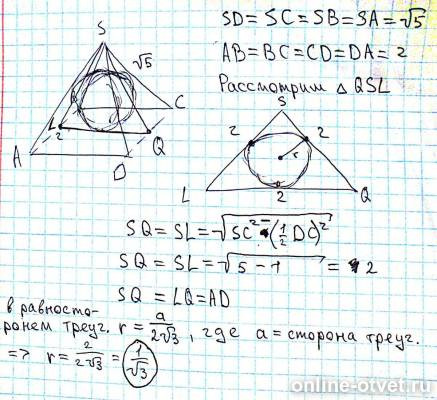 SD = SC = SB = SA = √5
AB = BC = CD = DA = 2
Рассмотрим △ QSL
S
√5
L
2
C
Q
A
D
S
2
2
r
L
2
Q
SQ = SL = √(SC² - (½ DC)²)
SQ = SL = √(5 - 1) = 2
SQ = LQ = AD
в равносто-
ронем треуг. r = a/2√3, где a = сторона треуг.
=> r = 2/2√3 = 1/√3
online-otvet.ru